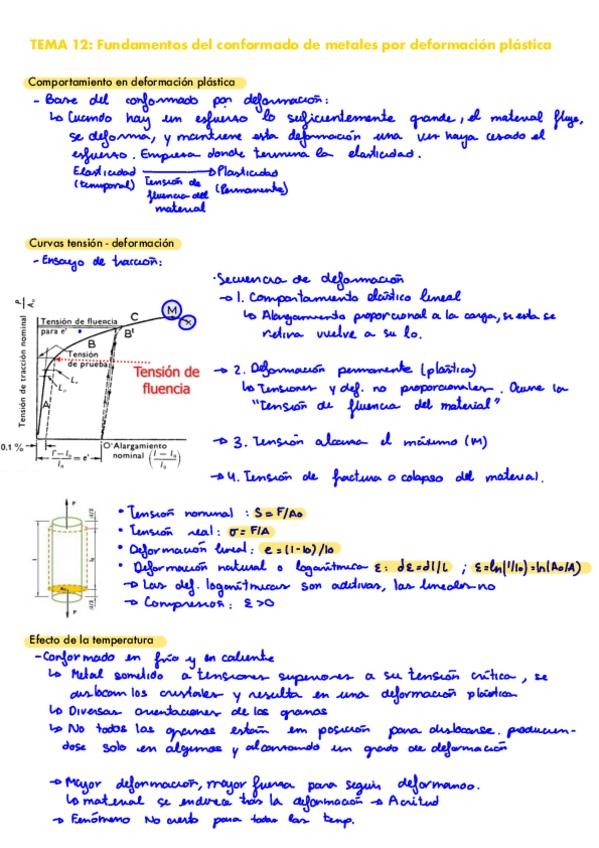 TEMA 12: Fundamentos del conformado de metales por deformación plástica
Comportamiento en deformación plástica
- Base del conformado por deformación:
↳ Cuando hay un esfuerzo lo suficientemente grande, el material fluye,
se deforma, y mantiene esta deformación una vez haya cesado el
esfuerzo. Empresa donde termina la elasticidad.
Elasticidad → Plasticidad
(temporal) Tensión de (Permanente)
fluencia del
material
Curvas tensión - deformación
- Ensayo de tracción:
· Secuencia de deformación
→ 1. Comportamiento elástico lineal
↳ Alargamiento proporcional a la carga, si esta se
retira vuelve a su lo.
→ 2. Deformación permanente (plástica)
↳ Tensiones y def. no proporcionales. Ocurre la
"Tensión de fluencia del material"
→ 3. Tensión alcanza el máximo (M)
→ 4. Tensión de fractura o colapso del material.
Tensión de tracción nominal P/A₀
Tensión de fluencia
para e'
C
M
B
B'
Tensión
de prueba
Tensión de
fluencia
A
0,1 %
O' Alargamiento
nominal (l - l₀ / l₀)
l' - l₀ / l₀ = e'
• Tensión nominal : S = F/A₀
• Tensión real : σ = F/A
• Deformación lineal : e = (l-lo)/lo
• Deformación natural o logarítmica ε: dε = dl/L ; ε = ln(l/lo) = ln(A₀/A)
→ Las def. logarítmicas son aditivas, las lineales no
→ Compresión: ε > 0
Efecto de la temperatura
- Conformado en frío y en caliente
↳ Metal sometido a tensiones superiores a su tensión crítica, se
dislocan los cristales y resulta en una deformación plástica
↳ Diversas orientaciones de los granos
↳ No todos los granos están en posición para dislocarse. producien-
dose solo en algunos y alcanzando un grado de deformación
→ Mayor deformación, mayor fuerza para seguir deformando.
↳ material se endurece tras la deformación → Acritud
→ Fenómeno No cierto para todas las temp.